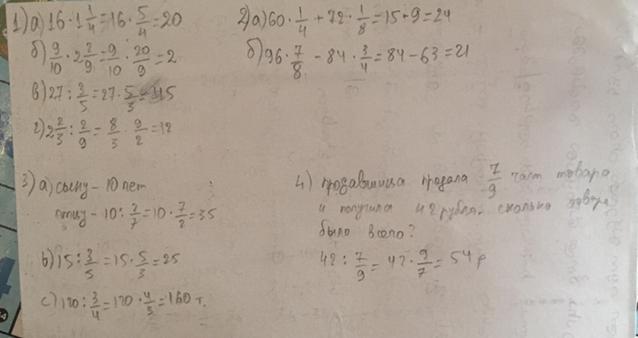 1) а) 16 · 1 1/4 = 16 · 5/4 = 20
б) 9/10 · 2 2/9 = 9/10 · 20/9 = 2
в) 27 : 3/5 = 27 · 5/3 = 45
г) 2 2/3 : 2/9 = 8/3 · 9/2 = 12
2) а) 60 · 1/4 + 72 · 1/8 = 15 + 9 = 24
б) 96 · 7/8 - 84 · 3/4 = 84 - 63 = 21
3) а) сыну - 10 лет
отцу - 10 : 2/7 = 10 · 7/2 = 35
b) 15 : 3/5 = 15 · 5/3 = 25
c) 120 : 3/4 = 120 · 4/3 = 160 т.
4) продавщица продала 7/9 част товара
и получила 42 рубля. сколько товара
было всего?
42 : 7/9 = 42 · 9/7 = 54 р